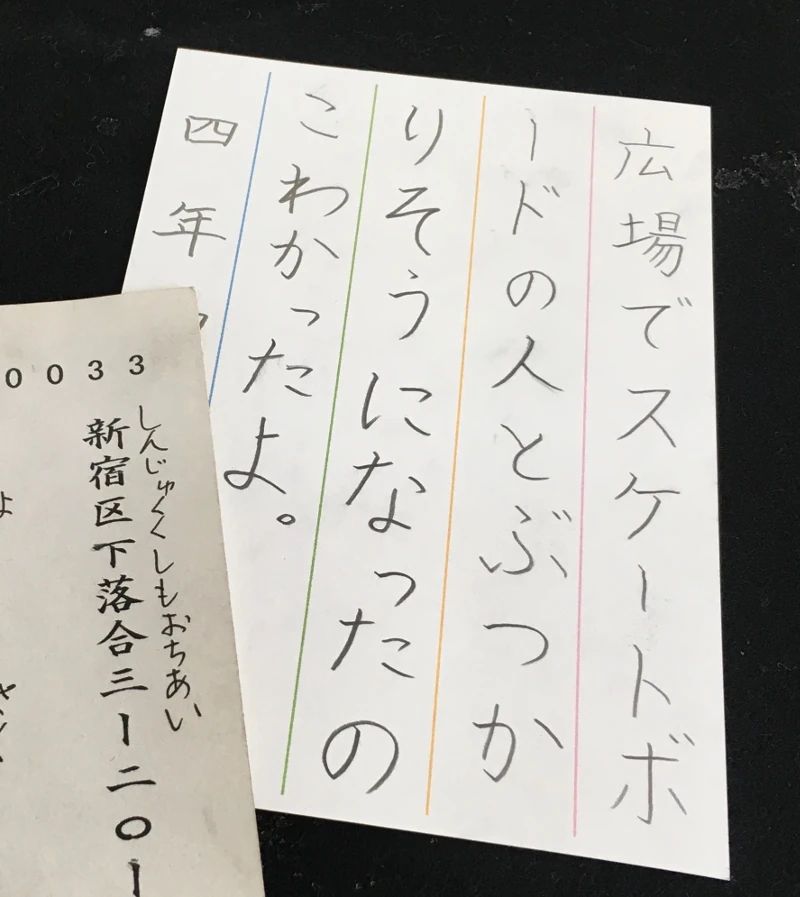 広場でスケートボ
ードの人とぶつか
りそうになったの
こわかったよ。
四年
0033
しんじゅくくしもおちあい
新宿区下落合三ー二〇ー